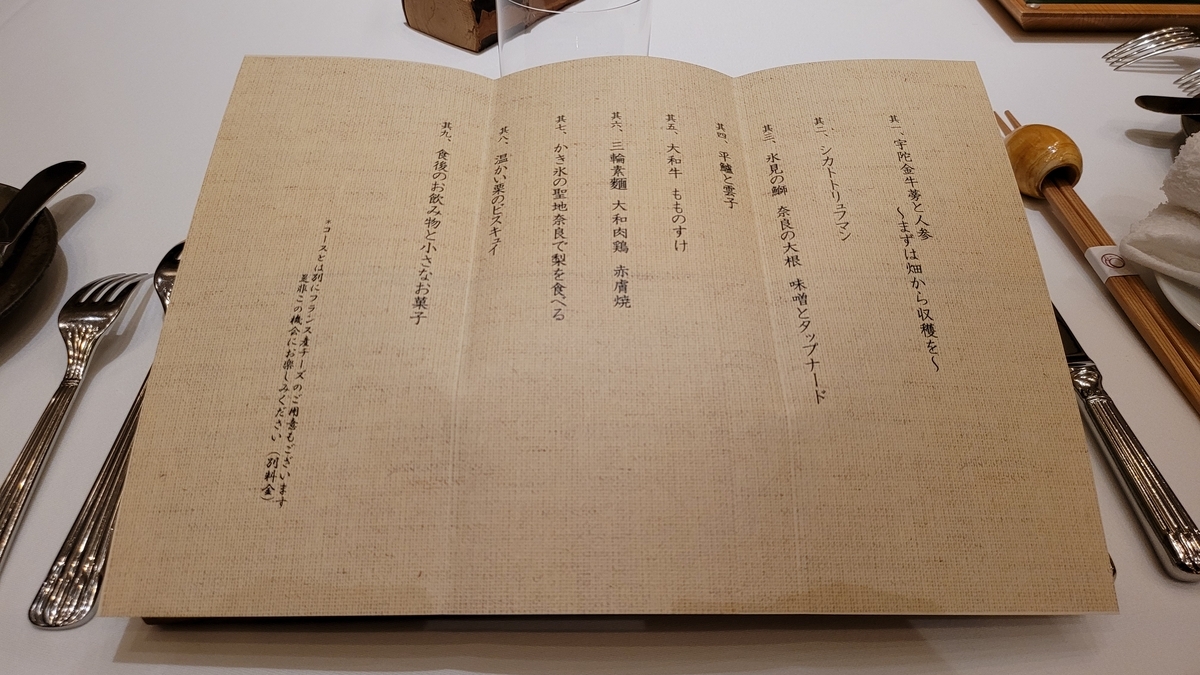 其一、宇陀金牛蒡と人参
〜まずは畑から収穫を〜
其二、シカトトリュフマン
其三、氷見の鰤 奈良の大根 味噌とタップナード
其四、平鱸と雲子
其五、大和牛 もものすけ
其六、三輪素麺 大和肉鶏 赤膚焼
其七、かき氷の聖地奈良で梨を食べる
其八、温かい栗のビスキュイ
其九、食後のお飲み物と小さなお菓子
*コースとは別にフランス産チーズのご用意もございます
是非この機会にお楽しみください (別料金)